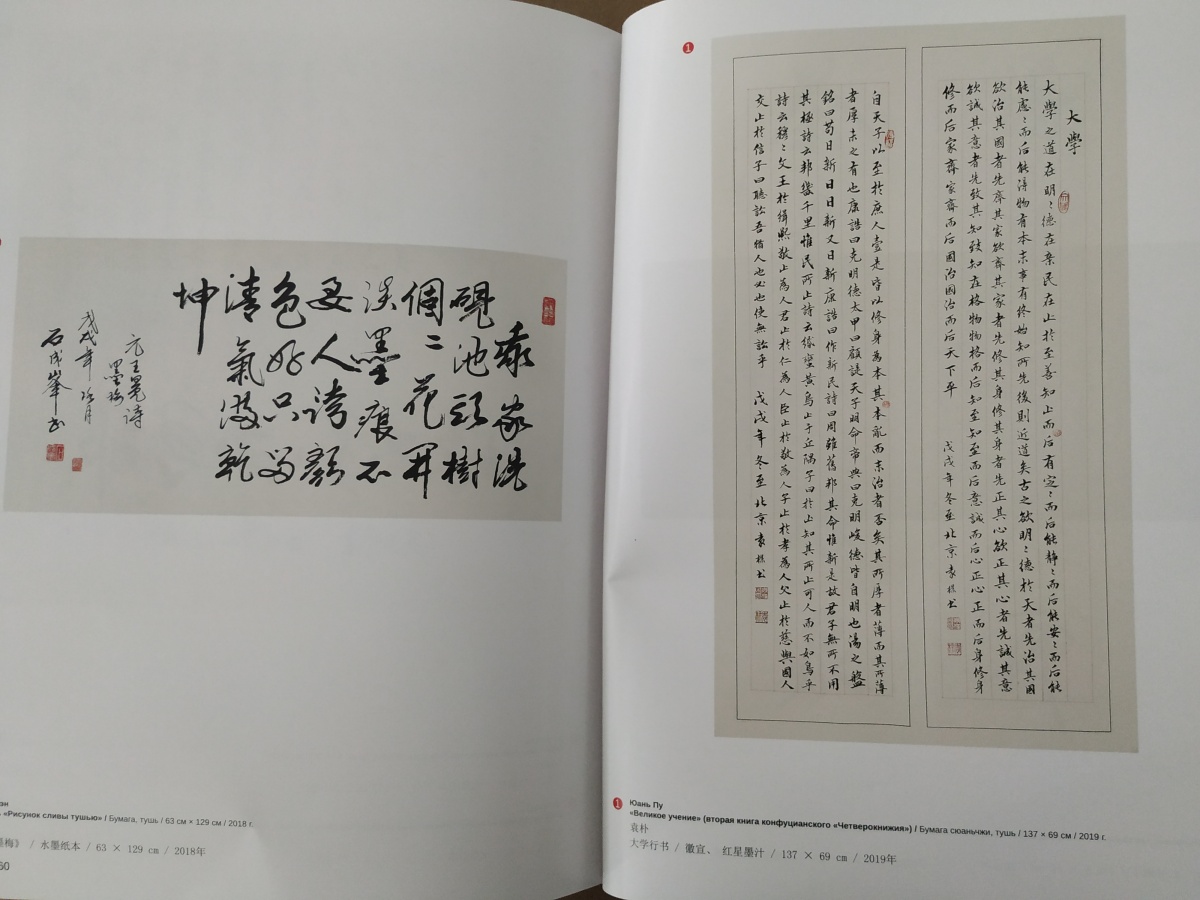 我家洗
硯池頭樹
個〻花開
淡墨痕不
要人誇顏
色好只留
清氣滿乾
坤
元王冕詩
墨梅
戊戌年冷月
石成峯书
эн
«Рисунок сливы тушью» / Бумага, тушь / 63 см × 129 см / 2018 г.
墨梅》 / 水墨纸本 / 63 × 129 cm / 2018年
60
1
大學
大學之道在明〻德在亲民在止於至善知止而后有定〻而后能静〻而后能安〻而后能
能慮〻而后能淂物有本末事有终始知所先後則近道矣古之欲明〻德於天者先治其國
欲治其國者先齊其家欲齊其家者先修其身修其身者先正其心欲正其心者先誠其意
欲誠其意者先致其知致知在格物物格而后知至知至而后意誠而后心正心正而后身修身
修而后家齊家齊而后國治國治而后天下平 戊戌年冬至北京袁樸书
自天子以至於庶人壹是皆以修身為本其本亂而末治者否矣其所厚者薄而其所薄
者厚未之有也康誥曰克明德太甲曰顧諟天子明命帝典曰克明峻德皆自明也湯之盤
銘曰苟日新日日新又日新康誥曰作新民詩曰周雖舊邦其命惟新是故君子無所不用
其極詩云邦畿千里惟民所止詩云緣蠻黄鳥止于丘隅子曰於止知其所止可人而不如鳥乎
詩云穆〻文王於缉熙敬止為人君止於仁為人臣止於敬為人子止於孝為人父止於慈與國人
交止於信子曰聽訟吾猶人也必也使無訟乎 戊戌年冬至北京袁樸书
1
Юань Пу
«Великое учение» (вторая книга конфуцианского «Четверокнижия») / Бумага сюаньчжи, тушь / 137 × 69 см / 2019 г.
袁朴
大学行书 / 徽宣、 红星墨汁 / 137 × 69 cm / 2019年